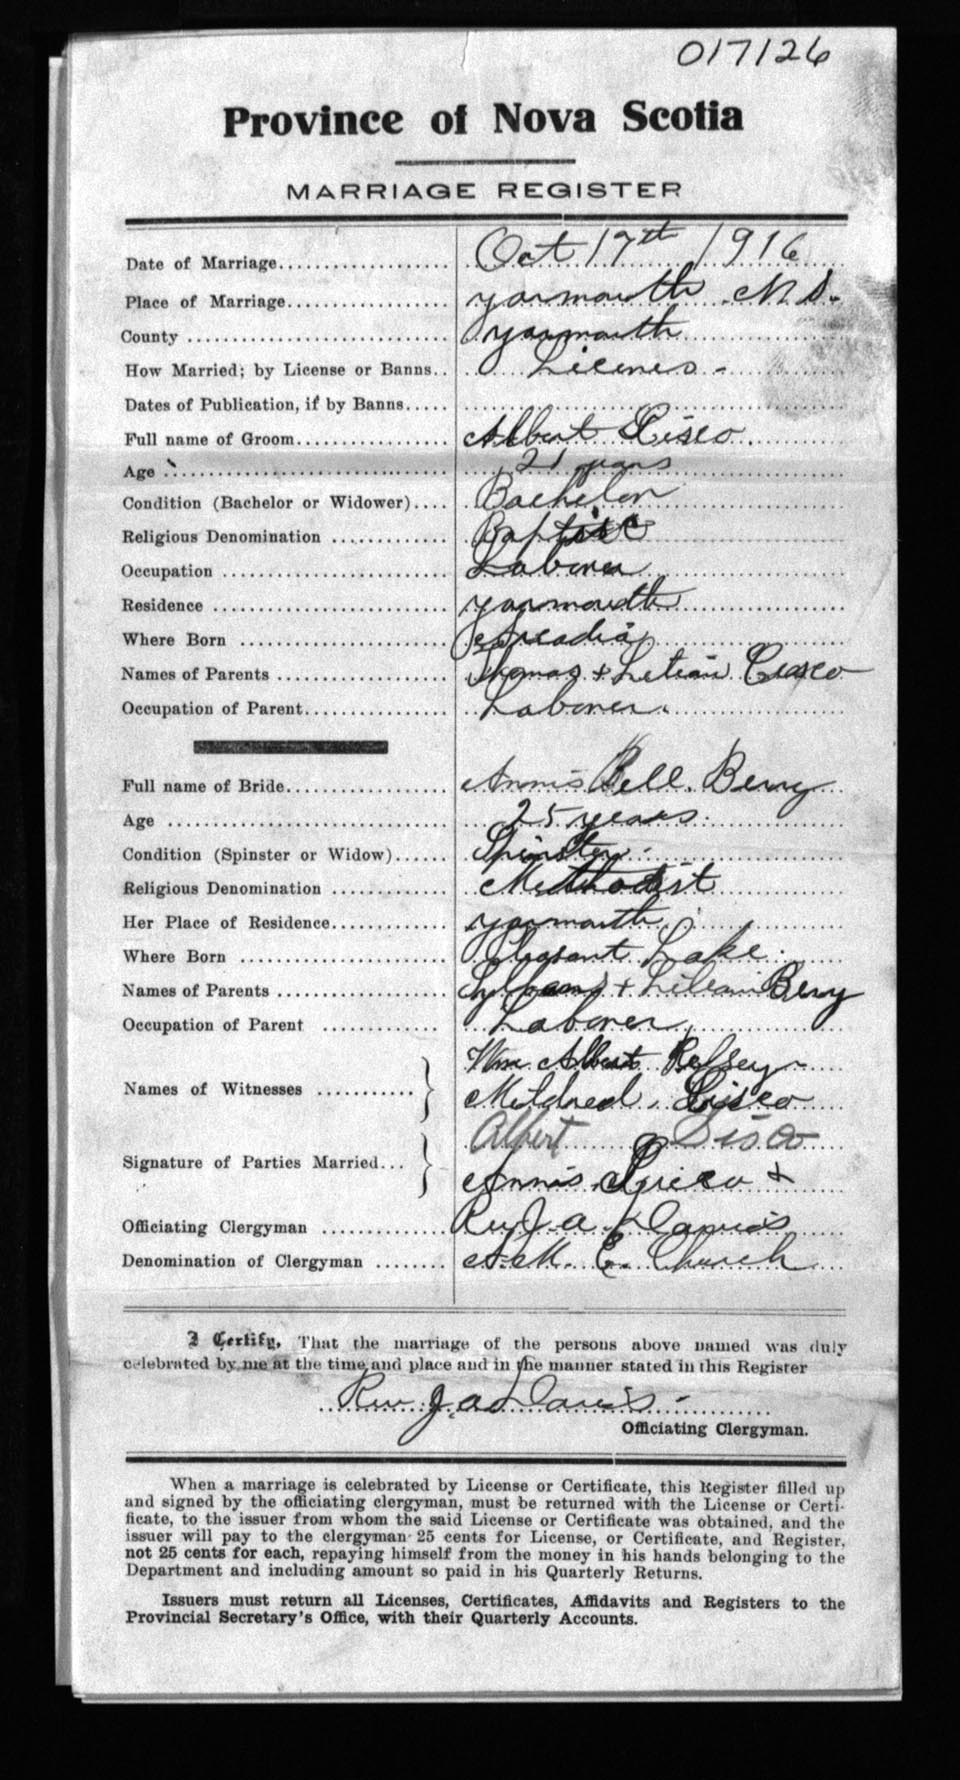 017126
Province of Nova Scotia
MARRIAGE REGISTER
Date of Marriage.................... Oct 17th 1916
Place of Marriage................... Yarmouth N S.
County .............................. Yarmouth
How Married; by License or Banns.. Licenes -
Dates of Publication, if by Banns.....
Full name of Groom.................. Albert Cisco
Age .................................. 21 years
Condition (Bachelor or Widower).... Bachelor
Religious Denomination ............. Baptist
Occupation .......................... Laborer
Residence ........................... Yarmouth
Where Born ........................ Arcadia
Names of Parents .................... Thomas + Cisco
Occupation of Parent................. Laborer.
Full name of Bride................... Annis Bell. Berry
Age ................................. 25 years.
Condition (Spinster or Widow)...... Spinster -
Religious Denomination ............. Methodist
Her Place of Residence.............. Yarmouth
Where Born ........................ Pleasant Lake
Names of Parents .................... + Lilean Berry
Occupation of Parent ............... Laborer
Names of Witnesses ........... } Wm Albert Kelsey
Mildred Cisco
Signature of Parties Married... } Albert Cisco
Annis Cisco +
Officiating Clergyman ............... Rev J. A. Davis
Denomination of Clergyman ........ A. M. E. Church
I Certify, That the marriage of the persons above named was duly
celebrated by me at the time and place and in the manner stated in this Register
Rev J. A. Davis -
Officiating Clergyman.
When a marriage is celebrated by License or Certificate, this Register filled up
and signed by the officiating clergyman, must be returned with the License or Certi-
ficate, to the issuer from whom the said License or Certificate was obtained, and the
issuer will pay to the clergyman 25 cents for License, or Certificate, and Register,
not 25 cents for each, repaying himself from the money in his hands belonging to the
Department and including amount so paid in his Quarterly Returns.
Issuers must return all Licenses, Certificates, Affidavits and Registers to the
Provincial Secretary's Office, with their Quarterly Accounts.